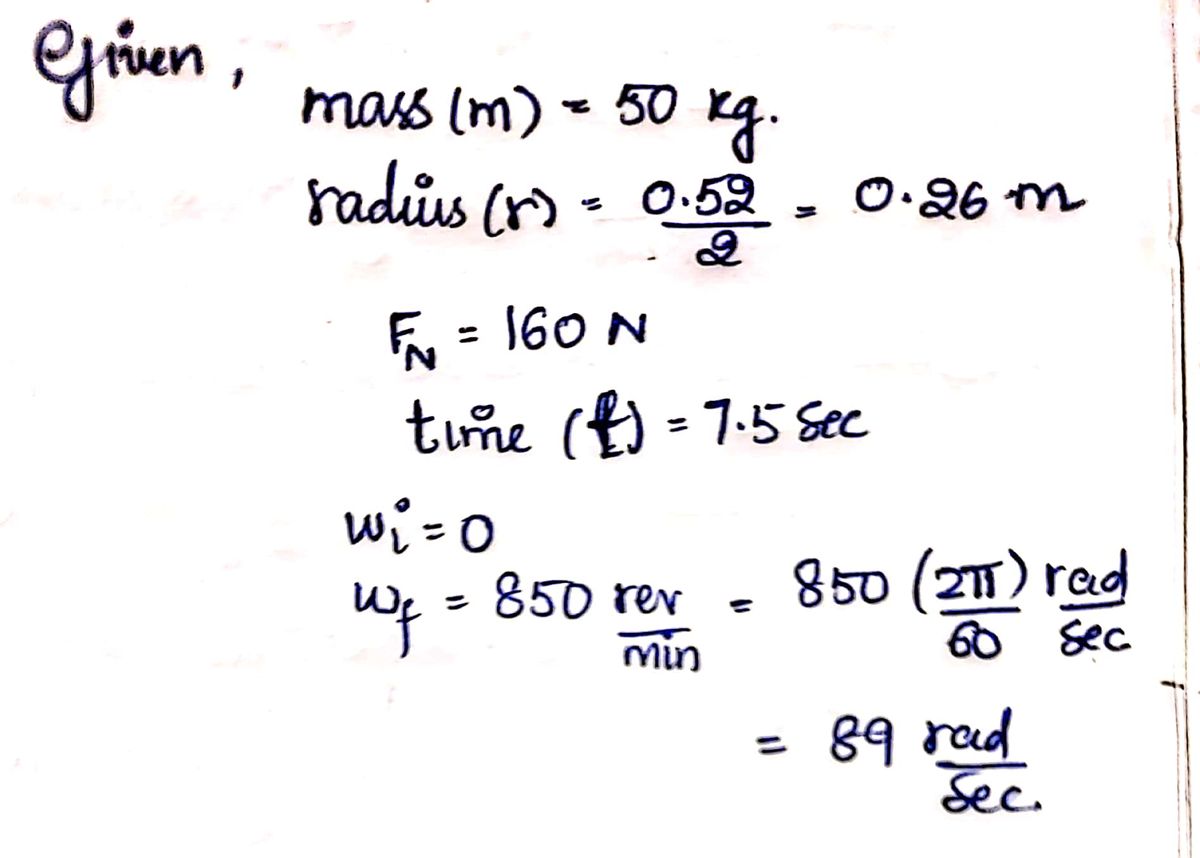 Given,
mass (m) = 50 kg.
radius (r) = 0.52/2 = 0.26 m
F_N = 160 N
time (t) = 7.5 Sec
w_i = 0
w_f = 850 rev/min = 850 (2π)/60 rad/sec
= 89 rad/sec.